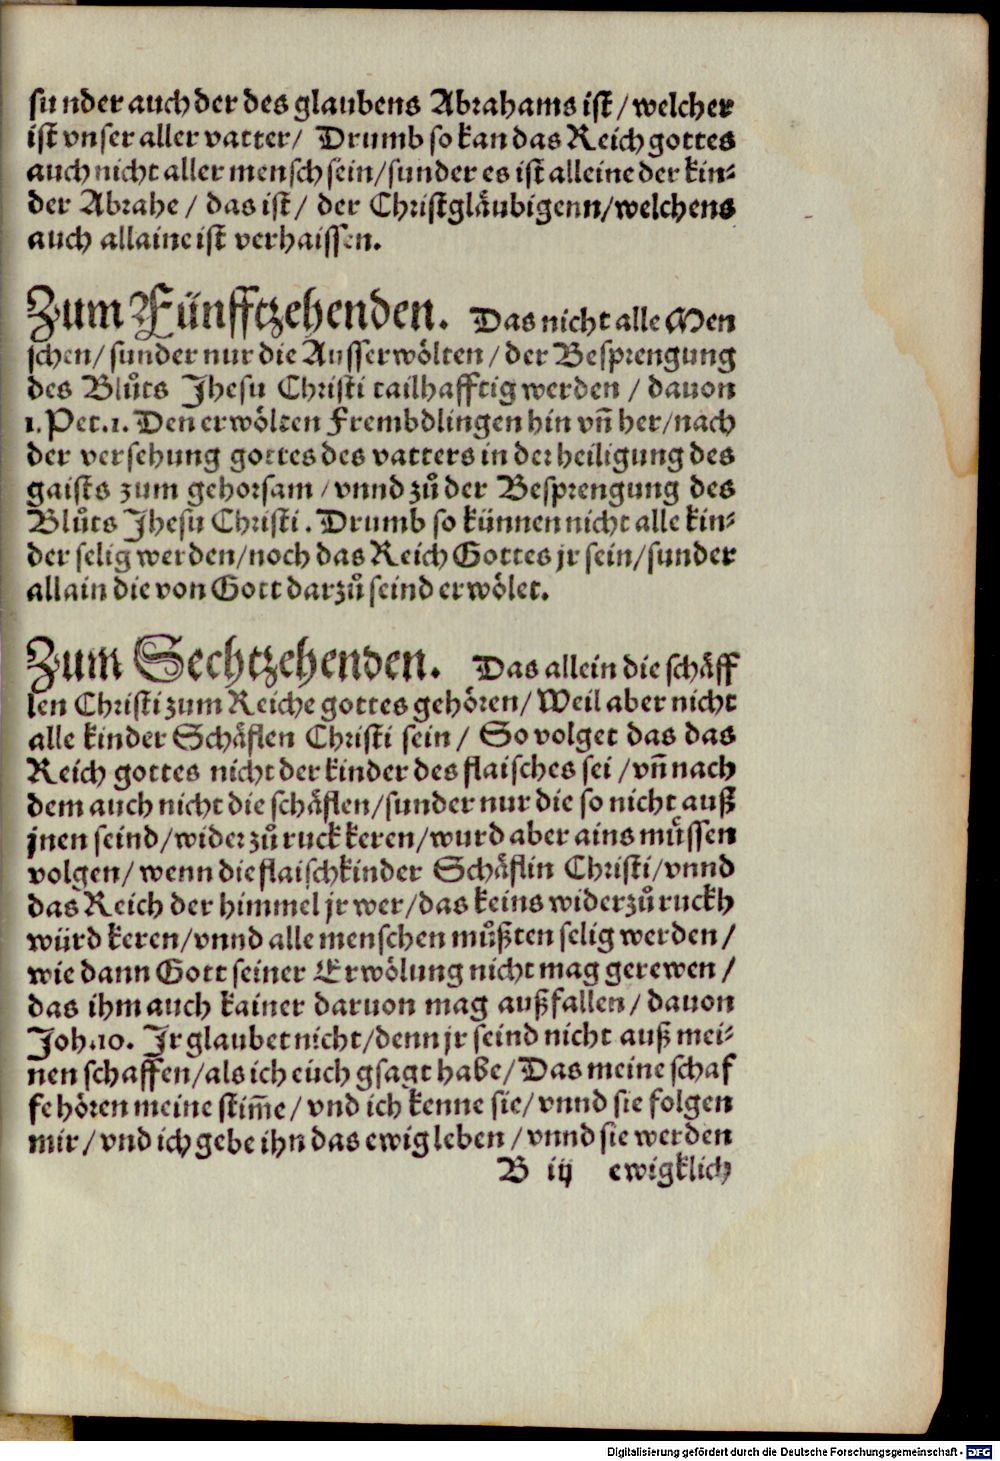 sunder auch der des glaubens Abrahams ist / welcher
ist vnser aller vatter / Drumb so kan das Reich gottes
auch nicht aller mensch sein / sunder es ist alleine der kin⸗
der Abrahe / das ist / der Christgläubigenn / welchens
auch allaine ist verhaissen.
Zum Fünfftzehenden. Das nicht alle Men
schen / sunder nur die Ausserwölten / der Besprengung
des Blůts Jhesu Christi tailhafftig werden / dauon
1. Pet. 1. Den erwölten Frembdlingen hin vñ her / nach
der versehung gottes des vatters in der heiligung des
gaists zum gehorsam / vnnd zů der Besprengung des
Blůts Jhesu Christi. Drumb so künnen nicht alle kin⸗
der selig werden / noch das Reich Gottes jr sein / sunder
allain die von Gott darzů seind erwölet.
Zum Sechtzehenden. Das allein die schäff
len Christi zum Reiche gottes gehören / Weil aber nicht
alle kinder Schäflen Christi sein / So volget das das
Reich gottes nicht der kinder des flaisches sei / vñ nach
dem auch nicht die schäflen / sunder nur die so nicht auß
jnen seind / wider zů ruck keren / wurd aber ains müssen
volgen / wenn die flaischkinder Schäflin Christi / vnnd
das Reich der himmel jr wer / das keins widerzů ruckh
würd keren / vnnd alle menschen můßten selig werden /
wie dann Gott seiner Erwölung nicht mag gerewen /
das ihm auch kainer daruon mag außfallen / dauon
Joh. 10. Jr glaubet nicht / denn jr seind nicht auß mei⸗
nen schaffen / als ich eüch gsagt habe / Das meine schaf
fe hören meine stim̃e / vnd ich kenne sie / vnnd sie folgen
mir / vnd ich gebe ihn das ewig leben / vnnd sie werden
B iij ewigklich
Digitalisierung gefördert durch die Deutsche Forschungsgemeinschaft - DFG